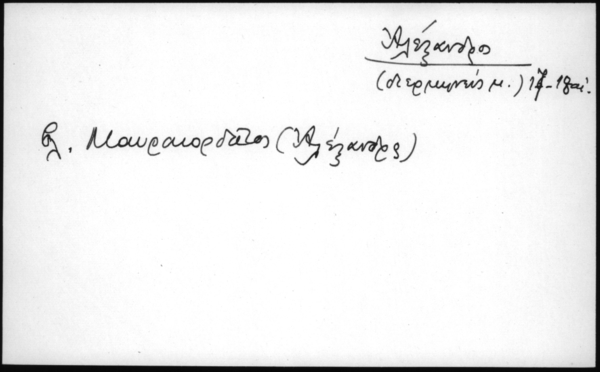 Ἀλέξανδρος
(διερμηνεὺς μ.) 17-18 αἰ.
βλ. Μαυροκορδᾶτος (Ἀλέξανδρος)